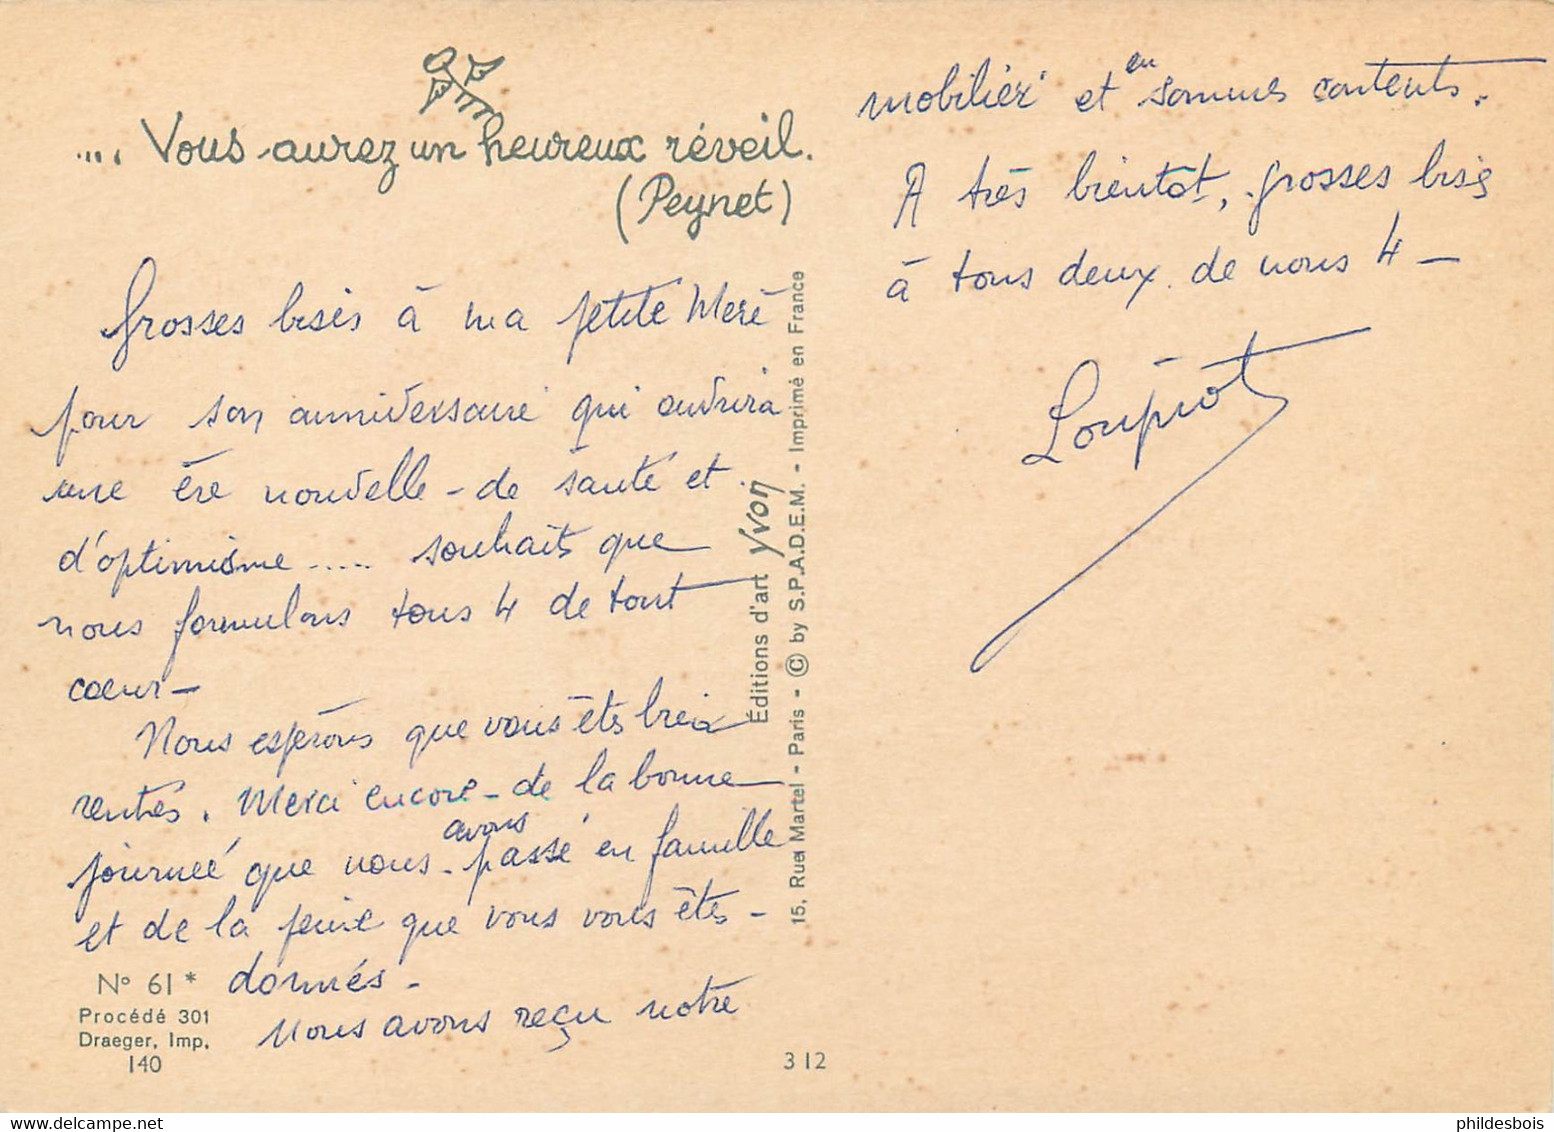 .... Vous aurez un heureux réveil.
(Peynet)
Grosses bises à ma petite Mère
pour son anniversaire qui ouvrira
une ère nouvelle de santé et
d'optimisme ..... souhaits que
nous formulons tous 4 de tout
coeur -
Nous espérons que vous êtes bien
rentrés. Merci encore de la bonne
journée que nous avons passé en famille
et de la peine que vous vous êtes -
donnés -
Nous avons reçu notre
mobilier et en sommes contents.
A très bientôt, grosses bises
à tous deux de nous 4 -
Loupiot
Éditions d'art Yvon
15, Rue Martel - Paris - © by S.P.A.D.E.M. - Imprimé en France
N° 61 *
Procédé 301
Draeger, Imp.
140
3 12
phildesbois